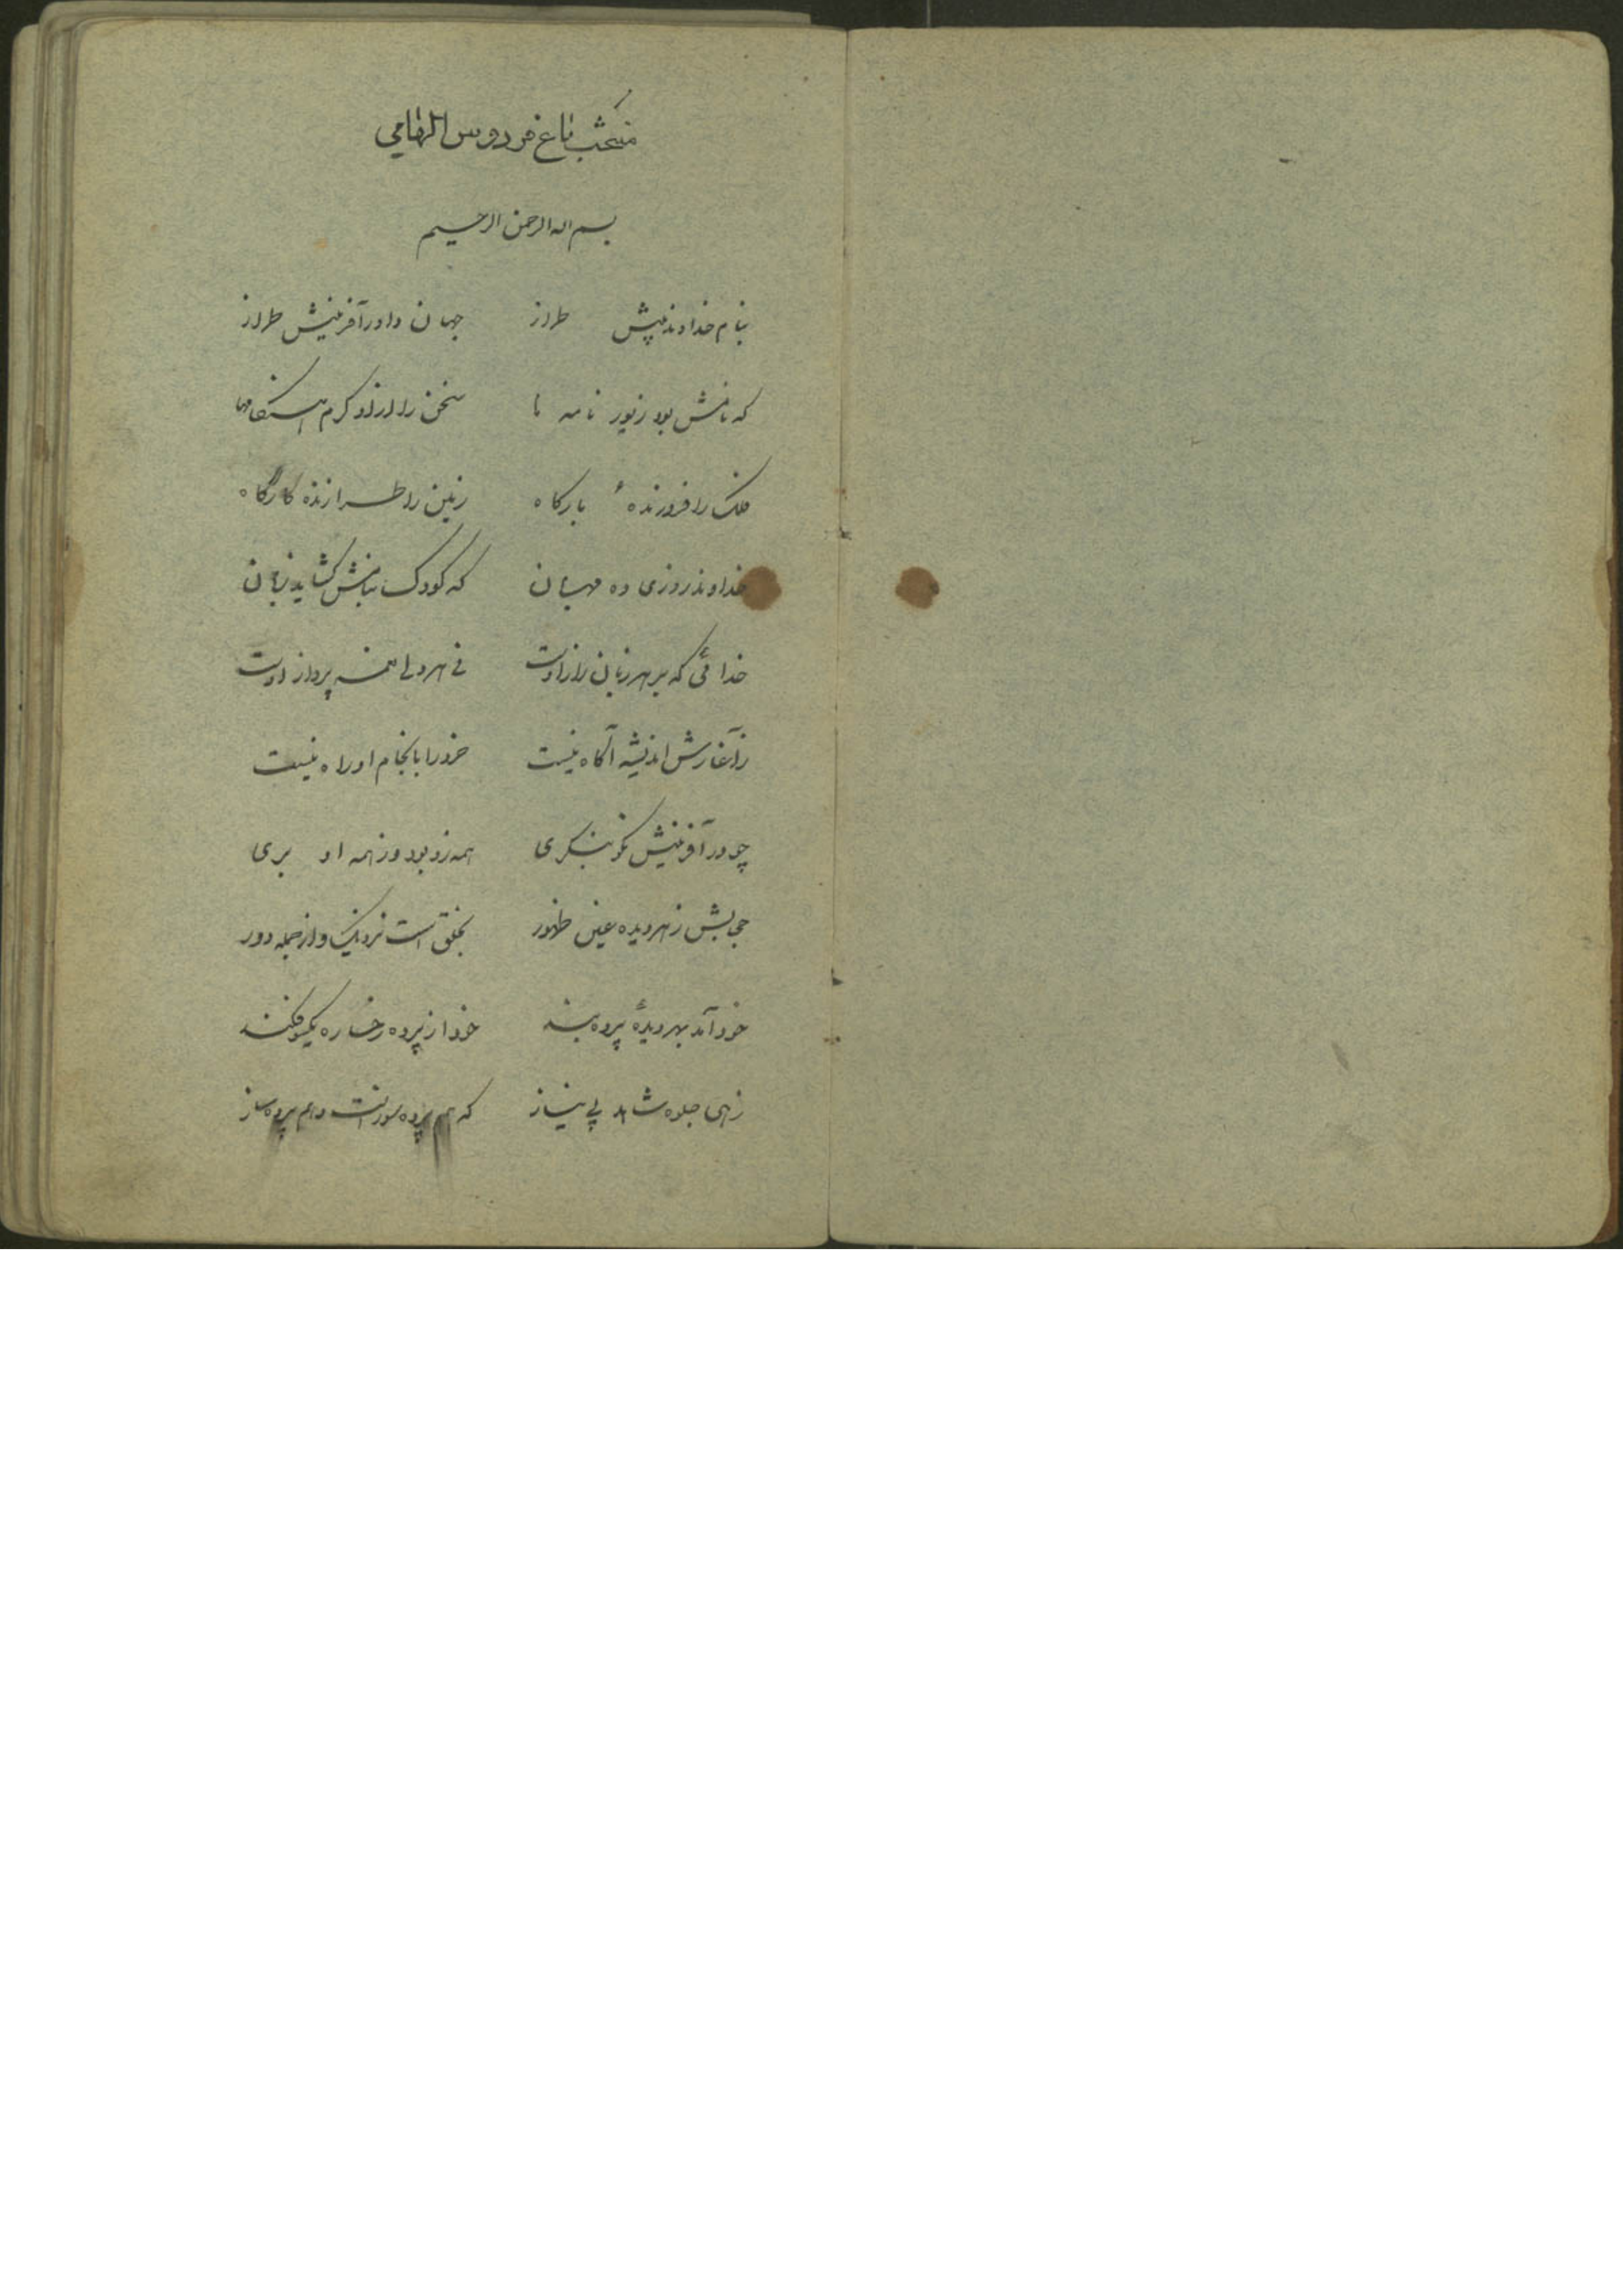 منتخب باغ فردوس الهامی
بسم اله الرحمن الرحیم
بنام خداوند بینش طراز جهان داور آفرینش طراز
که نامش بود زیور نامه ها سخن را ازاو گرم هنگامها
فلک را فروزندهٔ بارکاه زمین را طرازنده کارگاه
خداوند روزی ده مهربان که کودک بنامش گشاید زبان
خدائی که بر هر زبان راز اوست نی هر دلی نغمه پرداز اوست
زآغازش اندیشه آکاه نیست خرد را بانجام او راه نیست
چو در آفرینش نکو بنگری همه زو بود وز همه او بری
حجابش ز هر دیده عین ظهور بخلق است نزدیک و از جمله دور
خود آمد بهر دیدهٔ پرده بند خود از پرده رخساره یکسو فکند
زهی جلوه شاهد بی نیاز که هم پرده سوز است و هم پرده ساز